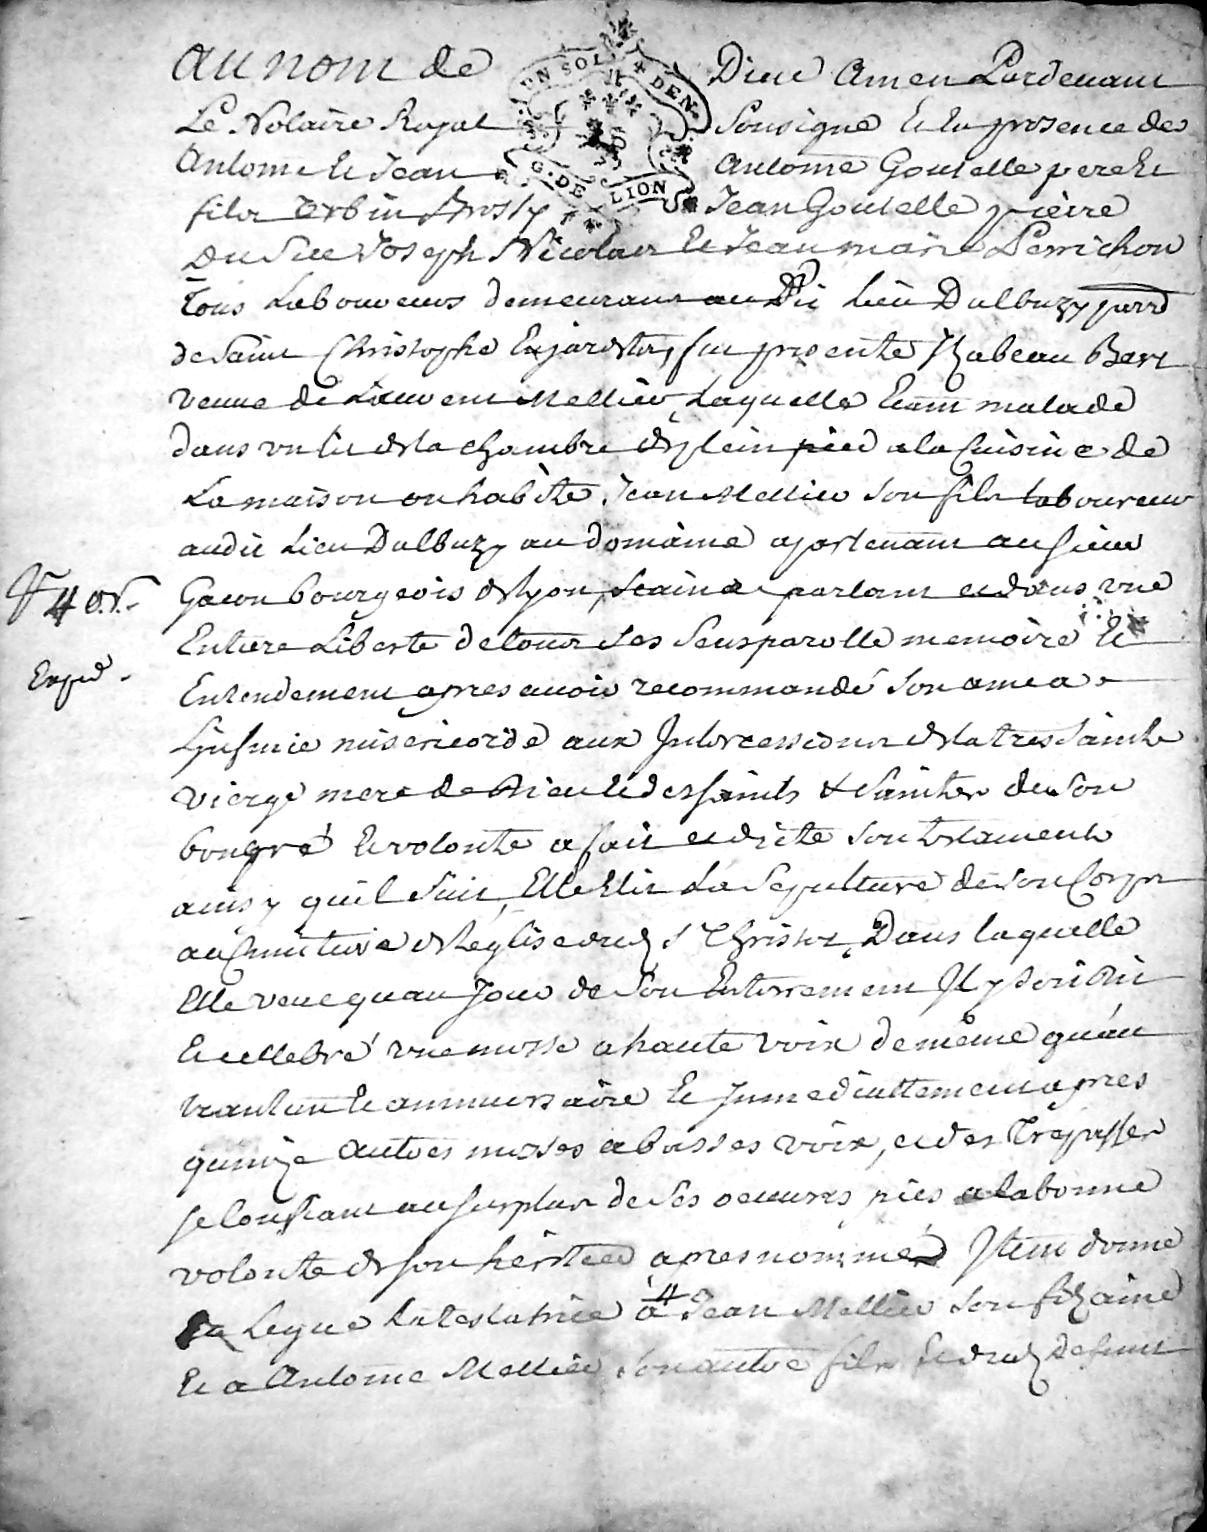 au nom de Dieu Amen Pardevant
Le Notaire Royal Sousigné Et En presence de
Antoine Et Jean Antoine Goutelle pere Et
fils Jean Goutelle pierre
Du Joseph Nicolas Et Jean marie Perrichon
Tous Laboureurs demeurant audit Lieu Dalbuzy parr
de Saint Christophe fut presente Izabeau
veuve de Laurent Mellier, Laquelle Etant malade
dans un lit de la chambre de plein pied a la Cuisine de
La maison ou habite Jean Mellier Son fils laboureur
audit Lieu Dalbuzy au domaine apartenant au sieur
Gacon bourgeois de lyon, Saine parlant et dans une
Entiere Liberté de tous Ses Sens parolle memoire Et
Entendement apres avoir recommandé Son ame a
L'infinie misericorde aux Intercessions de la tres Sainte
vierge mere de Dieu et des saints & Saintes de Son
bongré Et volonté a fait et dicté Son testament
ainsy quil Suit, Elle Elit La Sepulture de Son Corps
au Cimitiere de leglise dud St Christoe, Dans laquelle
Elle veut quau Jour de Son Enterrement Il y Soit Dit
Et cellebré une messe a haute voix de même quau
trantain Et anniversaire Et Immediattement apres
quinze autres messes a basses voix, et des Trepasses
se Confiant au surplus de Ses oeuvres pies a la bonne
volonté de son heritier apres nommé Item donne
Et Legue La testatrice a Jean Mellier Son fils ainé
Et a Antoine Mellier Son autre fils et dud Defunt
UN SOL 4 DEN
G. DE LION
40 s.
Exped